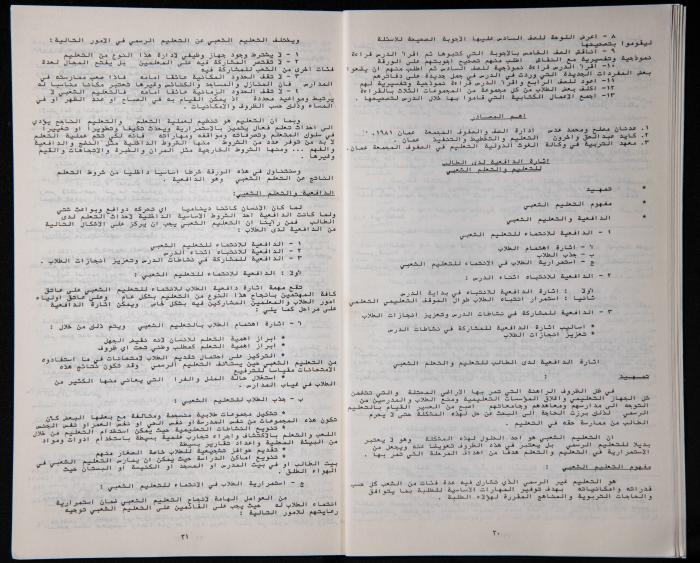 ٨ - اعرض اللوحة للصف السادس عليها الاجوبة الصحيحة للاسئلة
ليقوموا بتصحيحها
٩ - اناقش الصف الخامس بالاجوبة التي كتبوها ثم اقرأ الدرس قراءة
نموذجية وتفسيرية مع النقاش اطلب منهم تصحيح اجوبتهم على الورقة
١٠- اقرأ الدرس قراءة نموذجية للصف السادس ثم اطلب منهم ان يضعوا
بعض المفردات الجديدة التي وردت في الدرس في جمل جديدة على دفاترهم
١١- اعود للصف الرابع واقرأ الدرس قراءة نموذجية وتفسيرية لهم
١٢- اكلف بعض الطلاب من كل مجموعة من المجموعات الثلاث بالقراءة
١٣- اجمع الاعمال الكتابية التي قاموا بها خلال الدرس لتصحيحها .
اهم المصادر
١. عدنان مصلح ومحمد عدس ادارة الصف والصفوف المجمعة عمان ١٩٨١م
٢. كايد عبدالحق واخرون التعليم والتخطيط والتنفيذ عمان .
٣. معهد التربية في وكالة الغوث الدولية التعليم في الصفوف المجمعة عمان.
اثارة الدافعية لدى الطالب
للتعليم والتعلم الشعبي
* تمهيد
* مفهوم التعليم الشعبي
* الدافعية والتعليم الشعبي
١ - الدافعية للانتماء للتعليم الشعبي
أ - اثارة اهتمام الطلاب
ب - جذب الطلاب
ج - استمرارية الطلاب في الانتماء للتعليم الشعبي
٢ - الدافعية للانتباه اثناء الدرس :
اولا : اثارة الدافعية للانتباه في بداية الدرس
ثانيا : استمرار انتباه الطلاب طوال الموقف التعليمي التعلمي
٣ - الدافعية للمشاركة في نشاطات الدرس وتعزيز انجازات الطلاب
* اساليب اثارة الدافعية للمشاركة في نشاطات الدرس
* تعزيز انجازات الطلاب
اثارة الدافعية لدى الطالب للتعليم والتعلم الشعبي
تمهيد :
في ظل الظروف الراهنة التي تمر بها الاراضي المحتلة والتي تتلخص
كل الجهاز التعليمي واغلاق المؤسسات التعليمية ومنع الطلاب والمدرسين من
التوجه الى مدارسهم ومعاهدهم وجامعاتهم اصبح من العسير القيام بالتعليم
الرسمي لذلك برزت الحاجة الى البحث عن حل لهذه المشكلة حتى لا يحرم
الطالب من ممارسة حقه في التعليم .
ان التعليم الشعبي هو احد الحلول لهذه المشكلة وهو لا يعتبر
بديلا للتعليم الرسمي بل يعتبر في هذه الظروف تعويضا عنه ويجعل من
الاستمرارية في التعليم والتعلم هدفا من اهداف المرحلة التي نمر بها .
مفهوم التعليم الشعبي :
هو التعليم غير الرسمي الذي تشارك فيه عدة فئات من الشعب كل حسب
قدراته وامكانياته بهدف توفير المهارات الاساسية للطلبة بما يتوافق
والحاجات التربوية والمناهج المقررة لهؤلاء الطلبة .
٢٠
ويختلف التعليم الشعبي عن التعليم الرسمي في الامور التالية :
١ - لا يشترط وجود جهاز وظيفي لادارة هذا النوع من التعليم
٢ - لا تقتصر المشاركة فيه على المعلمين بل يفتح المجال لعدة
فئات اخرى من الشعب للمشاركة فيه
٣ - لا تقف الحدود المكانية عائقا امامه فاذا صعب ممارسته في
المدارس فان المنازل والمساجد والكنائس وغيرها تعتبر مكانا مناسبا له
٤ - لا تقف الحدود الزمانية عائقا امامه فالتعليم الشعبي لا
يرتبط ومواعيد محددة اذ يمكن القيام به في الصباح او عند الظهر او في
المساء وذلك حسب الظروف والامكانيات .
وبما ان التعليم هو تنظيم لعملية التعلم والتعليم الناجح يؤدي
الى احداث تعلم فعال يتميز بالاستمرارية ويحدث تكيفا وتطويرا او تغييرا
في سلوك المتعلم وتصرفاته ومواقفه ومهاراته فانه لكي تتم عملية التعلم
لا بد من توفر عدد من الشروط منها الشروط الداخلية مثل النضج والدافعية
والفهم ... ومنها الشروط الخارجية مثل المران والخبرة والاتجاهات والقيم
وغيرها .
وسنتناول في هذه الورقة شرطا اساسيا داخليا من شروط التعلم
الناتج عن التعليم الشعبي وهو الدافعية .
الدافعية والتعليم الشعبي:
لما كان الانسان كائنا ديناميا اي تحركه دوافع وبواعث شتى
ولما كانت الدافعية احد الشروط الاساسية الداخلية لاحداث التعلم لدى
الطالب فمن راينا ان التعليم الشعبي يجب ان يركز على الاشكال التالية
من الدافعية لدى الطلاب :
١ - الدافعية للانتماء للتعليم الشعبي
٢ - الدافعية للانتباه اثناء الدرس
٣ - الدافعية للمشاركة في نشاطات الدرس وتعزيز انجازات الطلاب .
اولا : الدافعية للانتماء للتعليم الشعبي :
تقع مهمة اثارة دافعية الطلاب للانتماء للتعليم الشعبي على عاتق
كافة المهتمين بانجاح هذا النوع من التعليم بشكل عام وعلى عاتق اولياء
امور الطلاب والمعلمين المشاركين فيه بشكل خاص ويمكن اثارة الدافعية
على مراحل كما يلي :
أ - اثارة اهتمام الطلاب بالتعليم الشعبي ويتم ذلك من خلال :
* ابراز اهمية التعلم للانسان لانه نقيض الجهل
* ابراز اهمية التعلم كمطلب وطني تحت اي ظروف
* التركيز على احتمال تقديم الطلاب لامتحانات في ما استفادوه
من التعليم الشعبي حين يستانف التعليم الرسمي وقد تكون نتائج هذه
الامتحانات مقياسا للترفيع
* استغلال حالة الملل والفراغ التي يعاني منها الكثير من
الطلاب في غياب المدارس .
ب - جذب الطلاب للتعليم الشعبي :
* تشكيل مجموعات طلابية منسجمة ومتآلفة مع بعضها البعض كأن
تكون هذه المجموعات من نفس المدرسة او نفس الحي او نفس العمر او نفس الجنس
* تنويع النشاطات التعليمية حيث يمكن استخدام التعليم من خلال
اللعب والتعلم بالاكتشاف واجراء تجارب علمية بسيطة باستخدام ادوات ومواد
من البيئة المحلية واعداد تقارير بسيطة
* تقديم حوافز تشجيعية للطلاب خاصة الصغار منهم
* تنويع اماكن الدراسة حيث يمكن ان يمارس التعليم الشعبي في
بيت الطالب او في بيت المدرس او المسجد او الكنيسة او البستان حيث
الهواء الطلق .
ج - استمرارية الطلاب في الانتماء للتعليم الشعبي :
من العوامل الهامة لانجاح التعليم الشعبي ضمان استمرارية
انتماء الطلاب له حيث يجب على القائمين على التعليم الشعبي توخيه
رعايتهم للامور التالية :
٢١